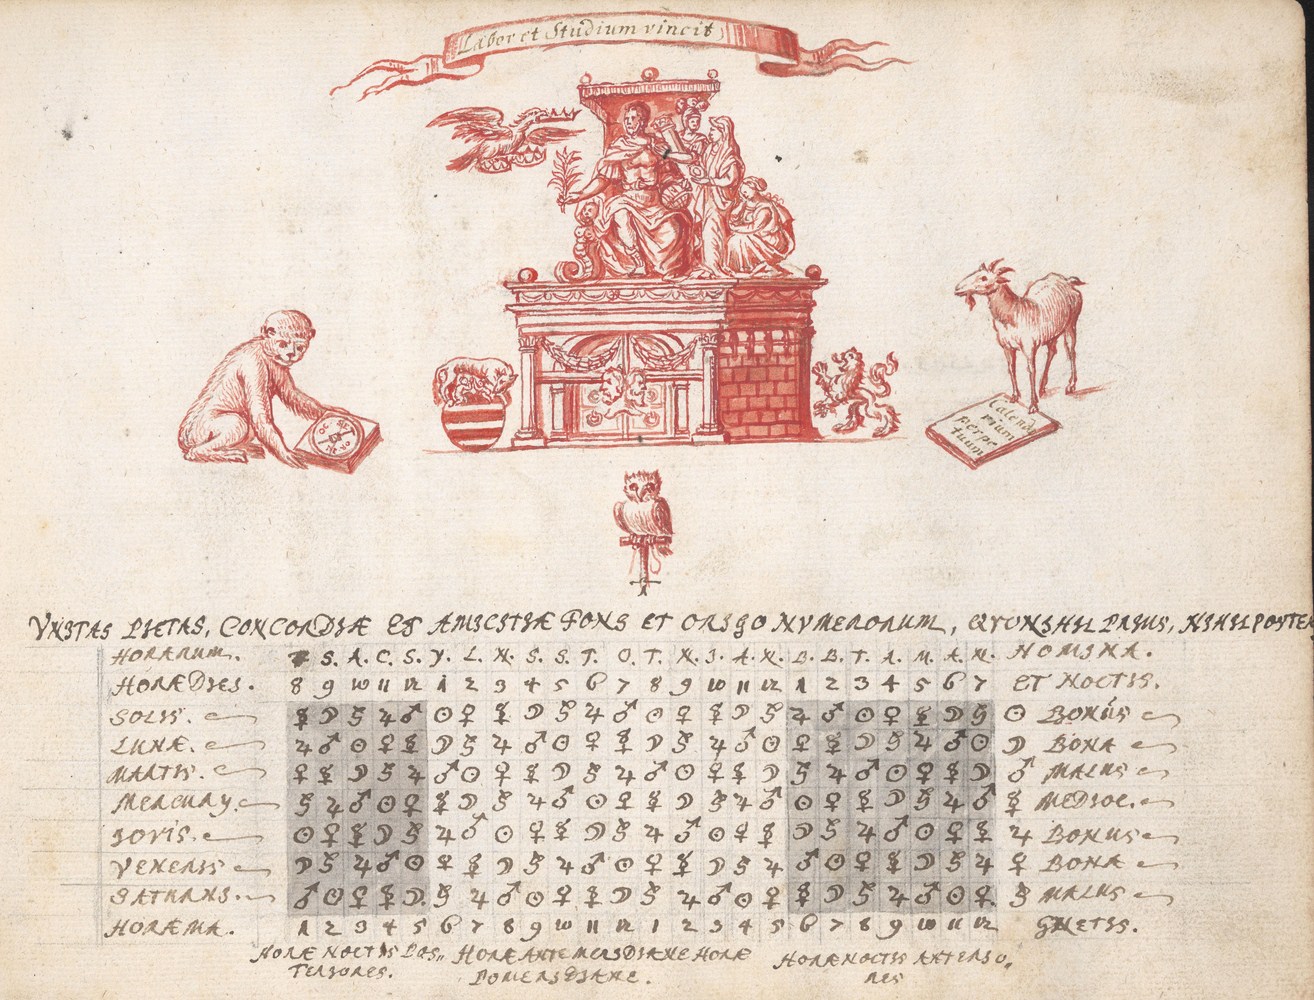 Labor et Studium vincit
Calenda
rium
perpe
tuum
VNITAS PIETAS, CONCORDIÆ ET AMICITIÆ FONS ET ORIGO NVMERORUM, QVO NIHIL PRIUS, NIHIL POSTER
HORARUM. S. A. C. S. Y. L. N. S. S. T. O. T. N. I. A. N. B. B. T. A. M. A. N. NOMINA.
HORÆ DIEI. 8 9 10 11 12 1 2 3 4 5 6 7 8 9 10 11 12 1 2 3 4 5 6 7 ET NOCTIS.
SOLIS. ☿ ☽ ♄ ♃ ♂ ☉ ♀ ☿ ☽ ♄ ♃ ♂ ☉ ♀ ☿ ☽ ♄ ♃ ♂ ☉ ♀ ☿ ☽ ♄ ☉ BONUS
LUNÆ. ♃ ♂ ☉ ♀ ☿ ☽ ♄ ♃ ♂ ☉ ♀ ☿ ☽ ♄ ♃ ♂ ☉ ♀ ☿ ☽ ♄ ♃ ♂ ☉ ☽ BONA
MARTIS. ♀ ☿ ☽ ♄ ♃ ♂ ☉ ♀ ☿ ☽ ♄ ♃ ♂ ☉ ♀ ☿ ☽ ♄ ♃ ♂ ☉ ♀ ☿ ☽ ♂ MALUS
MERCURY. ♄ ♃ ♂ ☉ ♀ ☿ ☽ ♄ ♃ ♂ ☉ ♀ ☿ ☽ ♄ ♃ ♂ ☉ ♀ ☿ ☽ ♄ ♃ ♂ ☿ MEDIOC.
IOVIS. ☉ ♀ ☿ ☽ ♄ ♃ ♂ ☉ ♀ ☿ ☽ ♄ ♃ ♂ ☉ ♀ ☿ ☽ ♄ ♃ ♂ ☉ ♀ ☿ ♃ BONUS
VENERIS ☽ ♄ ♃ ♂ ☉ ♀ ☿ ☽ ♄ ♃ ♂ ☉ ♀ ☿ ☽ ♄ ♃ ♂ ☉ ♀ ☿ ☽ ♄ ♃ ♀ BONA
SATHANI. ♂ ☉ ♀ ☿ ☽ ♄ ♃ ♂ ☉ ♀ ☿ ☽ ♄ ♃ ♂ ☉ ♀ ☿ ☽ ♄ ♃ ♂ ☉ ♀ ♄ MALUS
HORÆ MA. 1 2 3 4 5 6 7 8 9 10 11 12 1 2 3 4 5 6 7 8 9 10 11 12 GNETIS.
HORÆ NOCTIS POS,, HORÆ ANTEMERIDIANE HORÆ HORÆ NOCTIS ANTERIO,
TERIORES. POMERIDIANE. RES